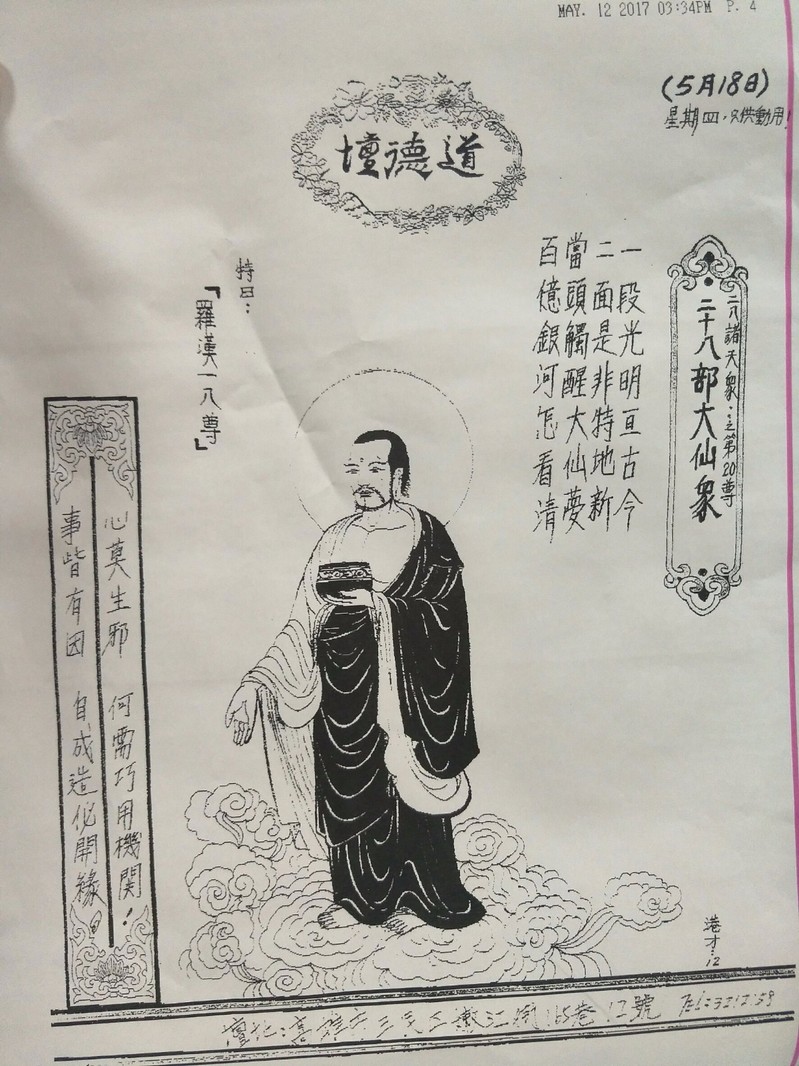 MAY. 12 2017 03:34PM P. 4
(5月18日)
星期四，只供動用！
道德壇
二八諸天眾：之第20尊
二十八部大仙眾
一段光明亘古今
二面是非特地新
當頭觸醒大仙夢
百億銀河怎看清
特曰：
「羅漢一八尊」
心莫生邪 何需巧用機關！
事皆有因 自成造化開緣。
港才：12
號